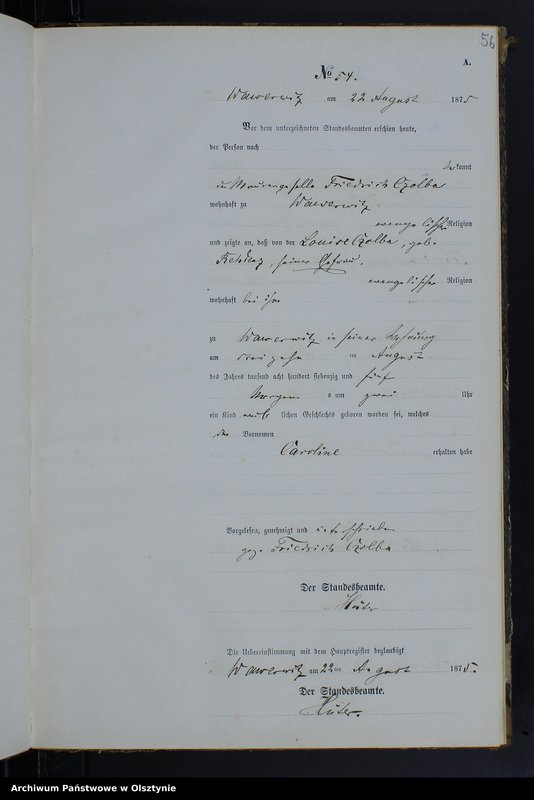 56
A.
No 54.
Wawerwitz am 22 August 1875
Vor dem unterzeichneten Standesbeamten erschien heute,
der Person nach
bekannt
Friedrich Czolba
wohnhaft zu Wawerwitz
evangelischer Religion
und zeigte an, daß von der Louise Czolba, geb.
seiner Ehefrau,
evangelischer Religion
wohnhaft bei ihm
zu Wawerwitz in seiner Wohnung
am dreizehn ten August
des Jahres tausend acht hundert siebenzig und fünf
Morgens um zwei Uhr
ein Kind weiblichen Geschlechts geboren worden sei, welches
den Vornamen
Caroline erhalten habe
Vorgelesen, genehmigt und unterschrieben
gez. Friedrich Czolba
Der Standesbeamte.
Hüter
Die Uebereinstimmung mit dem Hauptregister beglaubigt
Wawerwitz am 22ten August 1875.
Der Standesbeamte.
Hüter.
Archiwum Państwowe w Olsztynie